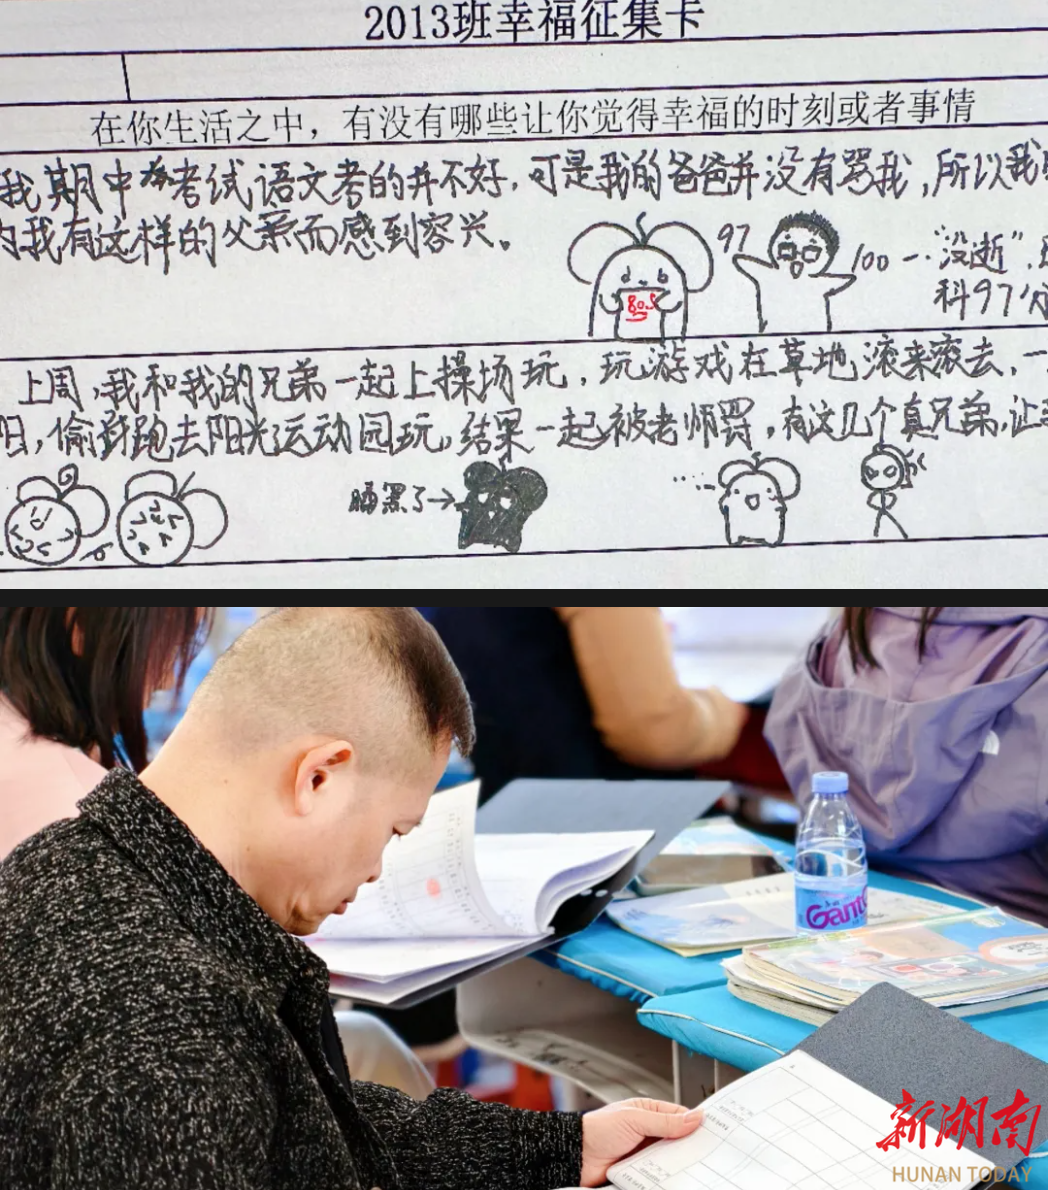 2013班幸福征集卡
在你生活之中，有没有哪些让你觉得幸福的时刻或者事情
我期中考试语文考的并不好，可是我的爸爸并没有骂我，所以我
我有这样的父亲而感到容兴。
97
100
"没逝"
80.5
科97分
上周，我和我的兄弟一起上操场玩，玩游戏在草地滚来滚去，一
阳，偷跑去阳光运动园玩，结果一起被老师罚，有这几个真兄弟，让
晒黑了→
新湖南
HUNAN TODAY